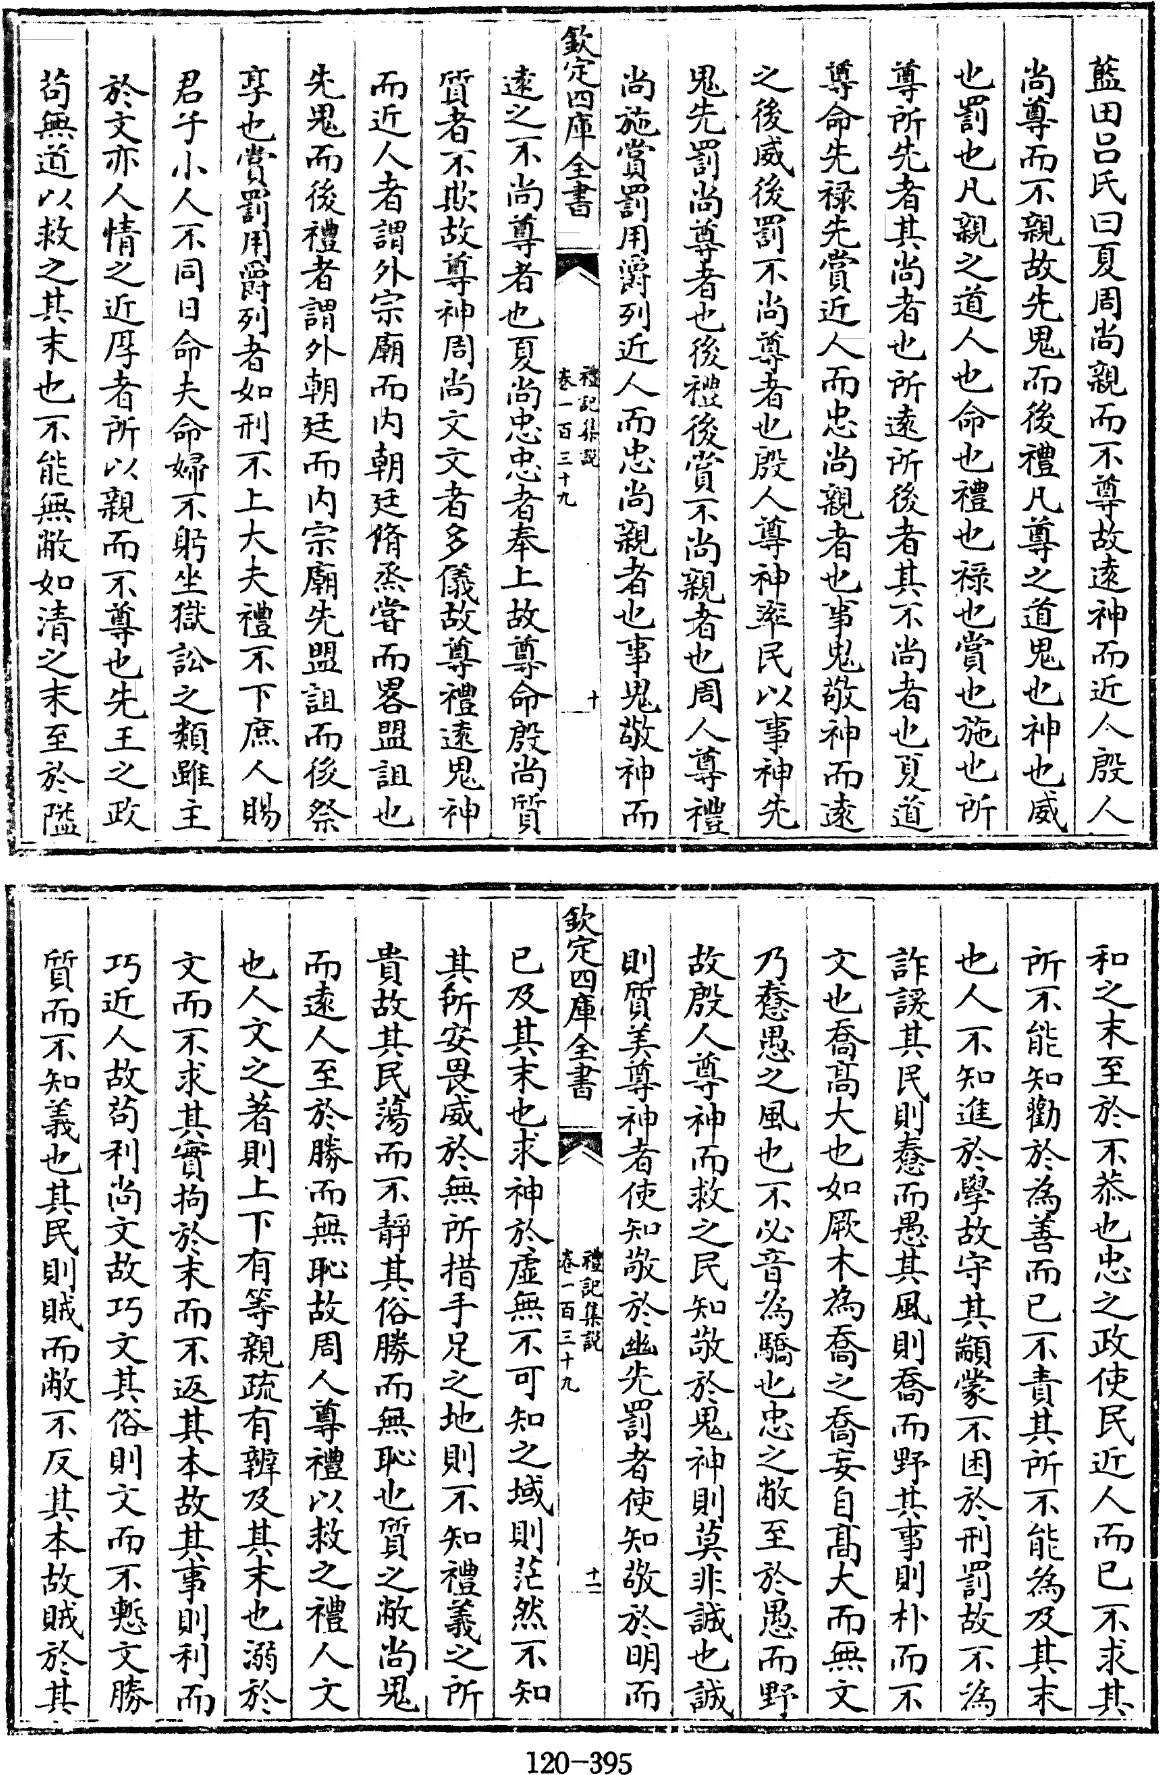 藍田吕氏曰夏周尚親而不尊故逺神而近人殷人
尚尊而不親故先鬼而後禮凡尊之道鬼也神也威
也罰也凡親之道人也命也禮也禄也賞也施也所
尊所先者其尚者也所逺所後者其不尚者也夏道
尊命先禄先賞近人而忠尚親者也事鬼敬神而逺
之後威後罰不尚尊者也殷人尊神率民以事神先
鬼先罰尚尊者也後禮後賞不尚親者也周人尊禮
尚施賞罰用爵列近人而忠尚親者也事鬼敬神而
欽定四庫全書
禮記集説
卷一百三十九
十
逺之不尚尊者也夏尚忠忠者奉上故尊命殷尚質
質者不欺故尊神周尚文文者多儀故尊禮逺鬼神
而近人者謂外宗廟而内朝廷脩烝甞而畧盟詛也
先鬼而後禮者謂外朝廷而内宗廟先盟詛而後祭
享也賞罰用爵列者如刑不上大夫禮不下庶人賜
君子小人不同日命夫命婦不躬坐獄訟之類雖主
於文亦人情之近厚者所以親而不尊也先王之政
苟無道以救之其末也不能無敝如清之末至於隘
和之末至於不恭也忠之政使民近人而已不求其
所不能知勸於為善而已不責其所不能為及其末
也人不知進於學故守其顓蒙不困於刑罰故不為
詐諼其民則惷而愚其風則喬而野其事則朴而不
文也喬髙大也如厥木為喬之喬妄自髙大而無文
乃惷愚之風也不必音為驕也忠之敝至於愚而野
故殷人尊神而救之民知敬於鬼神則莫非誠也誠
則質美尊神者使知敬於幽先罰者使知敬於明而
欽定四庫全書
禮記集説
卷一百三十九
十一
已及其末也求神於虚無不可知之域則茫然不知
其所安畏威於無所措手足之地則不知禮義之所
貴故其民蕩而不靜其俗勝而無恥也質之敝尚鬼
而逺人至於勝而無恥故周人尊禮以救之禮人文
也人文之著則上下有等親疏有辨及其末也溺於
文而不求其實拘於末而不返其本故其事則利而
巧近人故苟利尚文故巧文其俗則文而不慙文勝
質而不知義也其民則賊而敝不反其本故賊於其
120-395